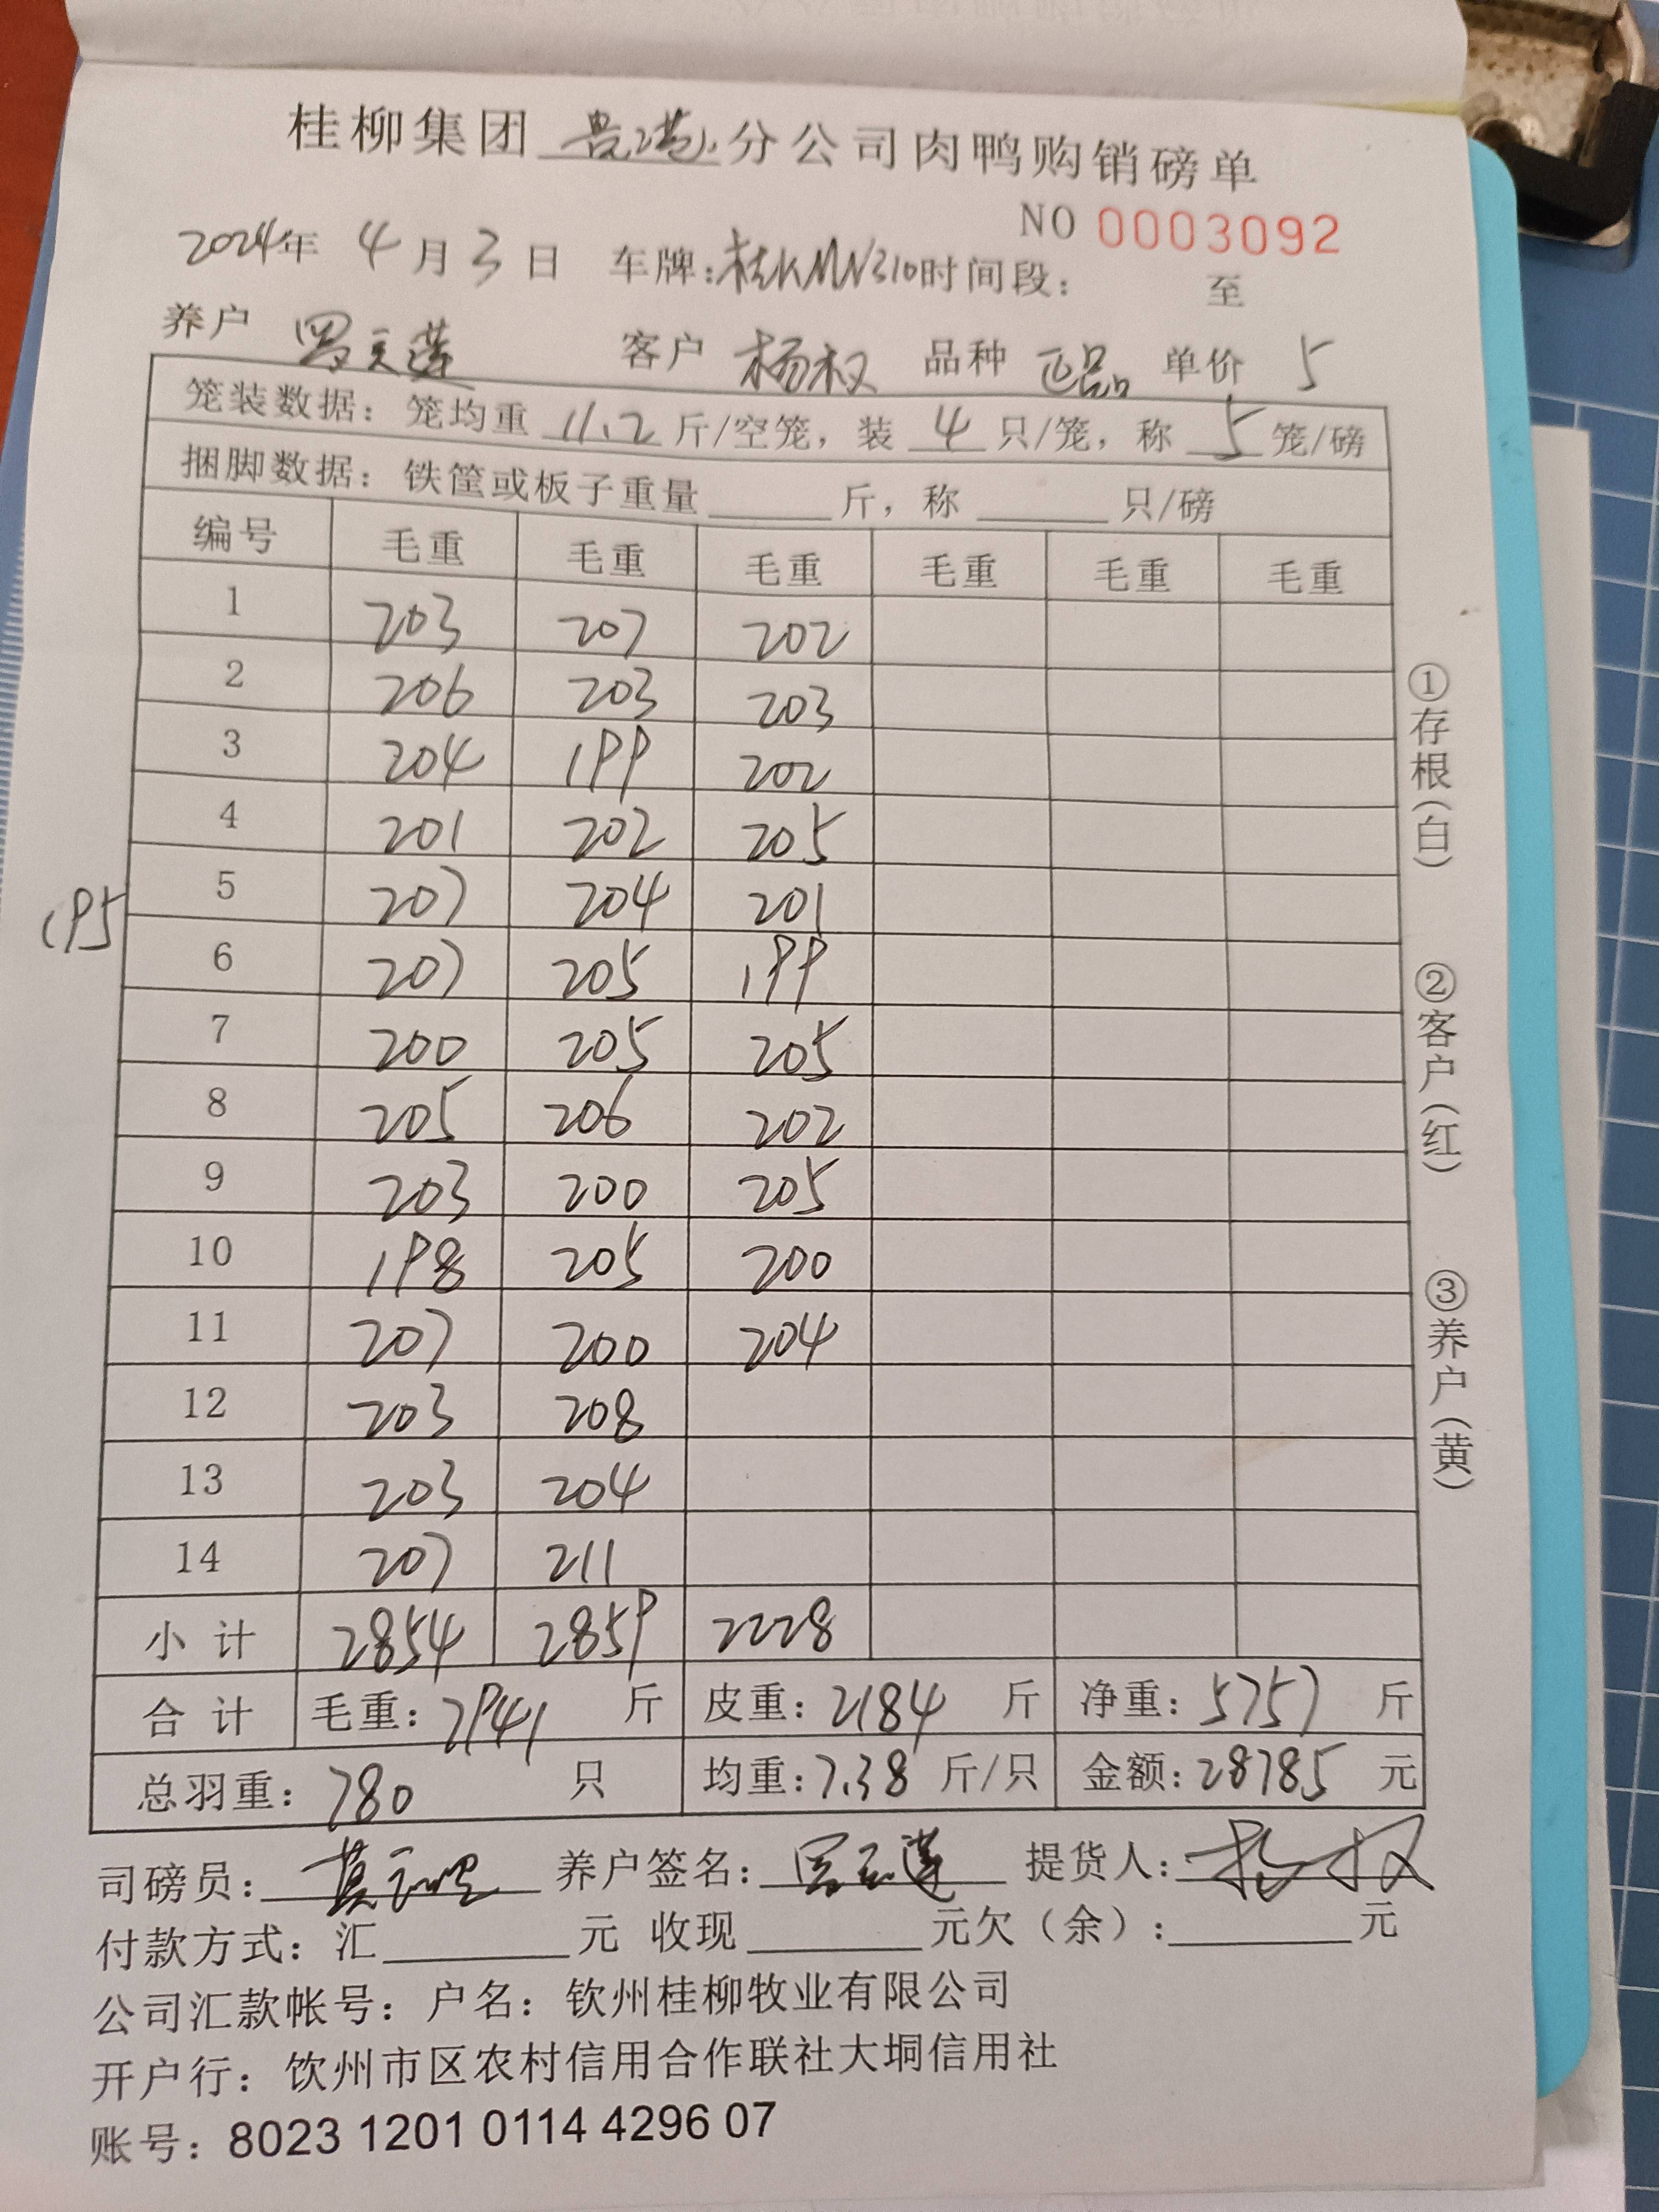 桂柳集团 贵港 分公司肉鸭购销磅单
NO 0003092
2024年 4 月 3 日 车牌:桂KMN310时间段: 至
养户 客户 杨权 品种 正品 单价 5
笼装数据: 笼均重 11.2 斤/空笼, 装 4 只/笼, 称 5 笼/磅
捆脚数据: 铁筐或板子重量 斤, 称 只/磅
编号 毛重 毛重 毛重 毛重 毛重 毛重
1 203 207 202
2 206 203 203
3 204 199 202
4 201 202 205
5 207 204 201
195
6 207 205 199
7 200 205 205
8 205 206 202
9 203 200 205
10 198 205 200
11 207 200 204
12 203 208
13 203 204
14 207 211
小计 2854 2859 2228
合计 毛重: 7941 斤 皮重: 2184 斤 净重: 5757 斤
总羽重: 780 只 均重: 7.38 斤/只 金额: 28785 元
司磅员: 养户签名: 提货人: 杨权
付款方式: 汇 元 收现 元欠(余): 元
公司汇款帐号: 户名: 钦州桂柳牧业有限公司
开户行: 钦州市区农村信用合作联社大垌信用社
账号: 8023 1201 0114 4296 07
①存根(白)
②客户(红)
③养户(黄)